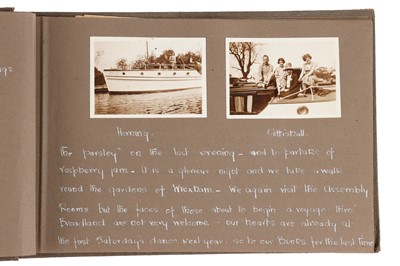 Horning.
The "parsley" on the last evening - and to partake of
raspberry jam - it is a glorious night and we take a walk
round the gardens of Wroxham - We again visit the Assembly
Rooms but the faces of those about to begin a voyage thro'
Broadland are not very welcome - our hearts are already at
the first Saturday's dance next year. so to our Bunks for the last time